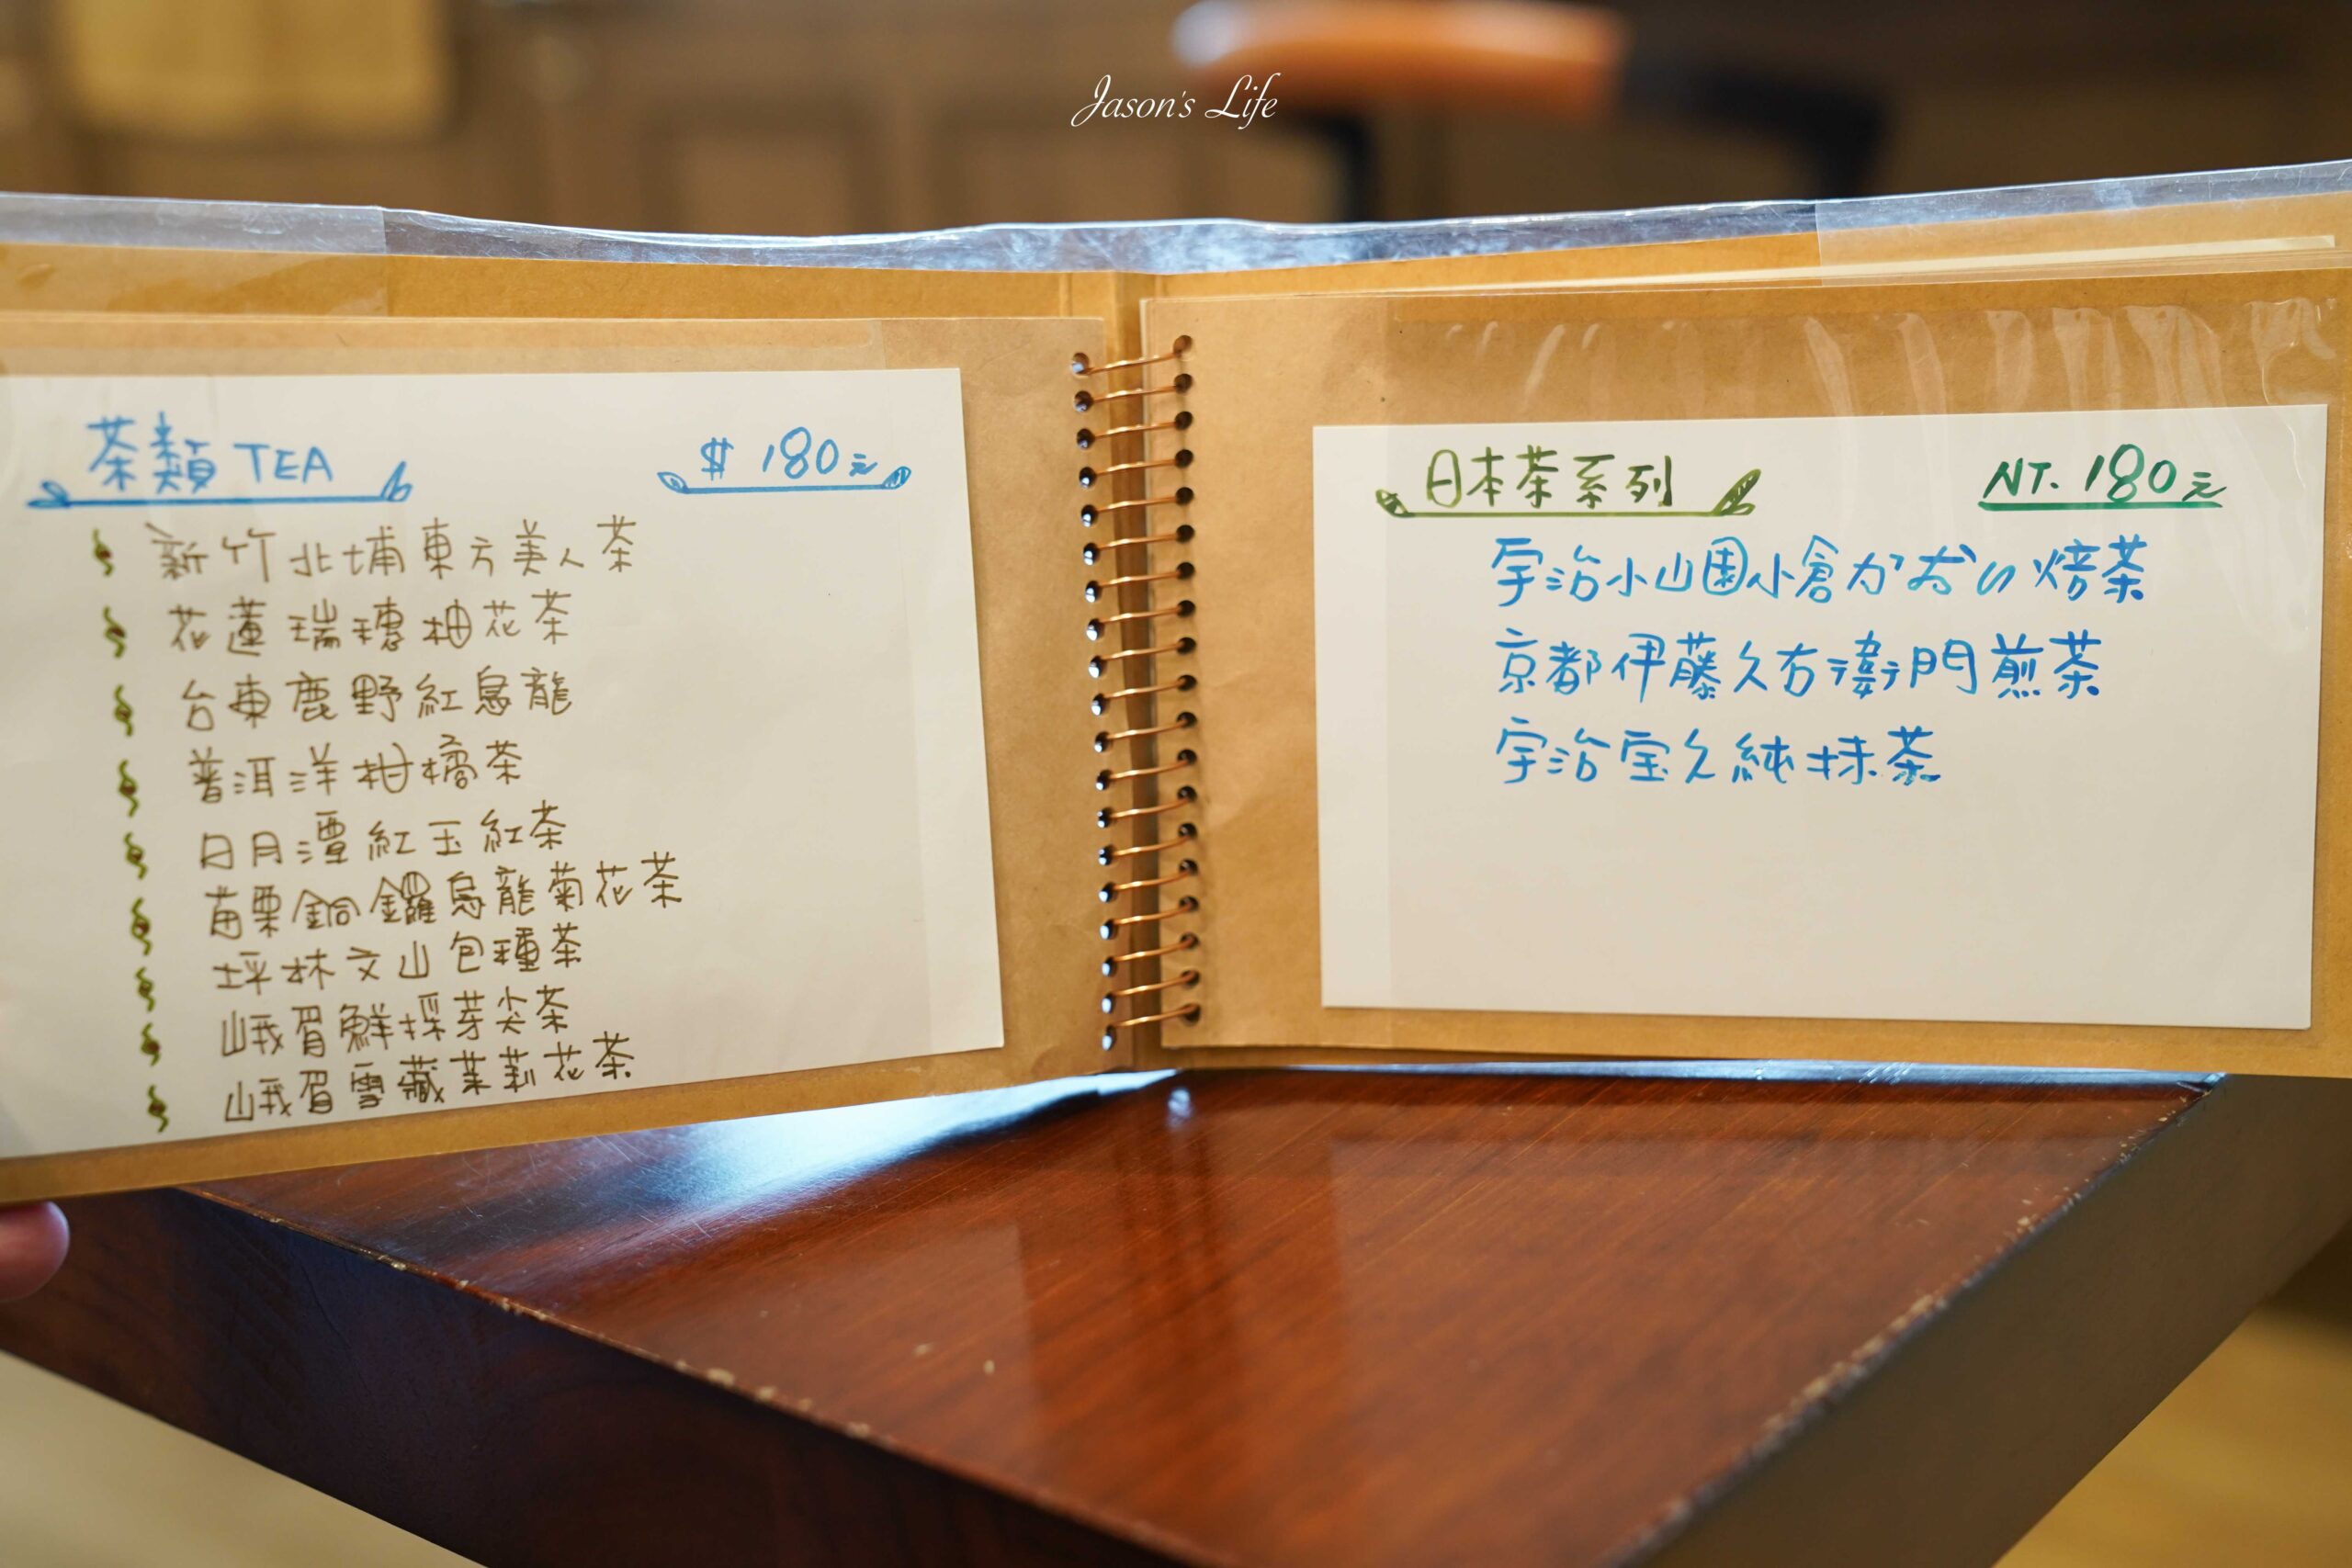 Jason's Life
茶類 TEA
$ 180元
新竹北埔東方美人茶
花蓮瑞穗柚花茶
台東鹿野紅烏龍
普洱洋柑橘茶
日月潭紅玉紅茶
苗栗銅鑼烏龍菊花茶
坪林文山包種茶
峨眉鮮採芽尖茶
峨眉雪藏茉莉花茶
日本茶系列
NT. 180元
宇治小山園小倉かおり焙茶
京都伊藤久右衛門煎茶
宇治宝久純抹茶